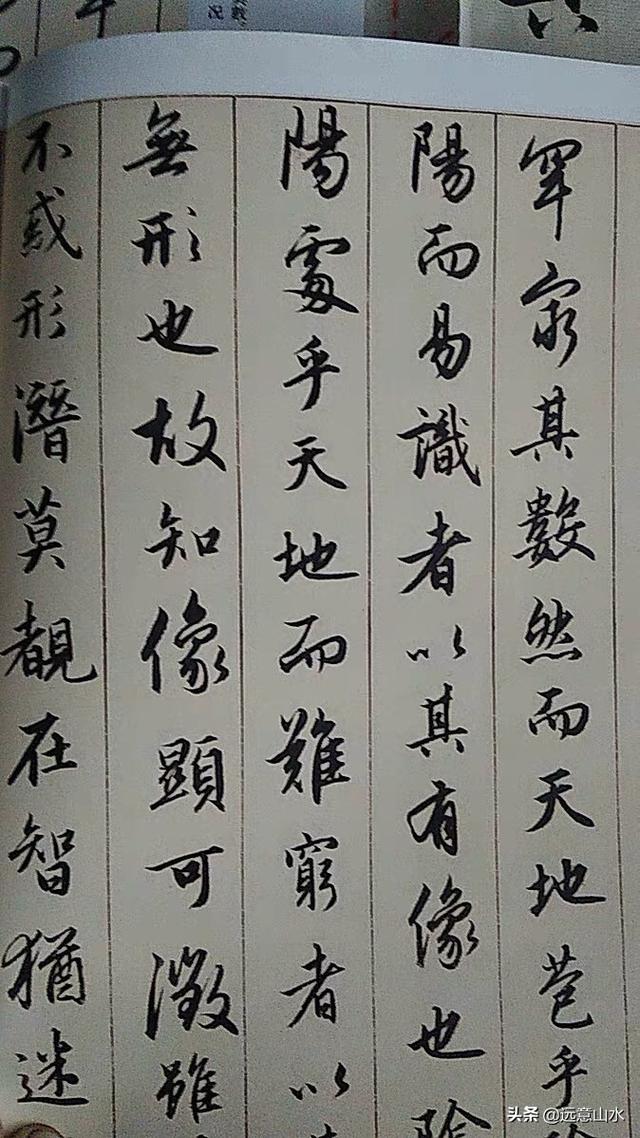 罕窮其數然而天地苞乎
陽而易識者以其有像也陰
陽處乎天地而難窮者以其
無形也故知像顯可徵雖
不惑形潛莫覩在智猶迷
头条 @远意山水